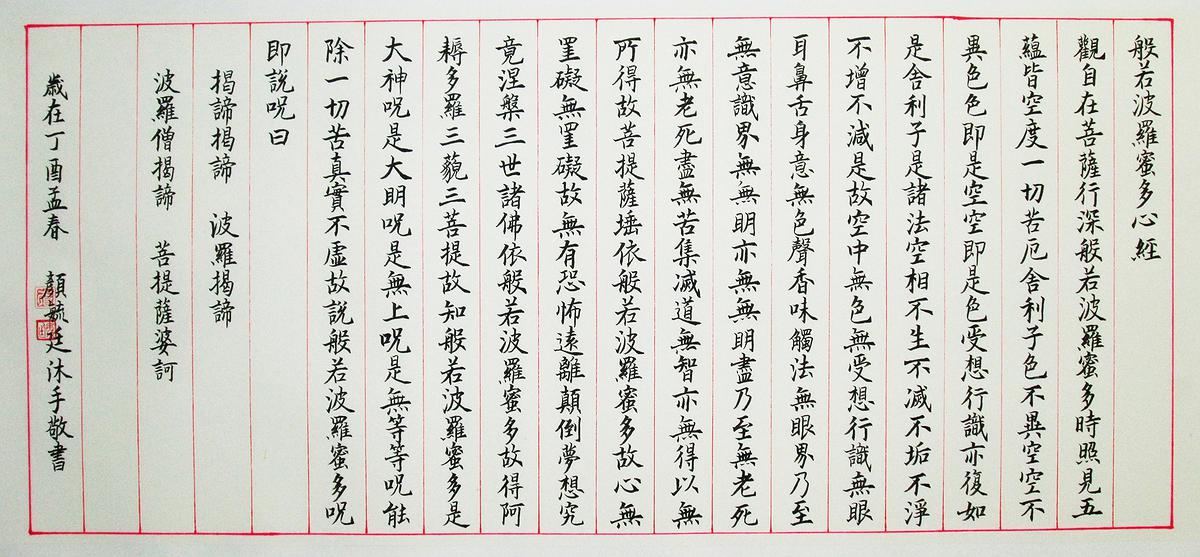 般若波羅蜜多心經
觀自在菩薩行深般若波羅蜜多時照見五
蘊皆空度一切苦厄舍利子色不異空空不
異色色即是空空即是色受想行識亦復如
是舍利子是諸法空相不生不滅不垢不淨
不增不減是故空中無色無受想行識無眼
耳鼻舌身意無色聲香味觸法無眼界乃至
無意識界無無明亦無無明盡乃至無老死
亦無老死盡無苦集滅道無智亦無得以無
所得故菩提薩埵依般若波羅蜜多故心無
罣礙無罣礙故無有恐怖遠離顛倒夢想究
竟涅槃三世諸佛依般若波羅蜜多故得阿
耨多羅三藐三菩提故知般若波羅蜜多是
大神呪是大明呪是無上呪是無等等呪能
除一切苦真實不虛故說般若波羅蜜多呪
即說呪曰
揭諦揭諦 波羅揭諦
波羅僧揭諦 菩提薩婆訶
歲在丁酉孟春 顏毓廷沐手敬書